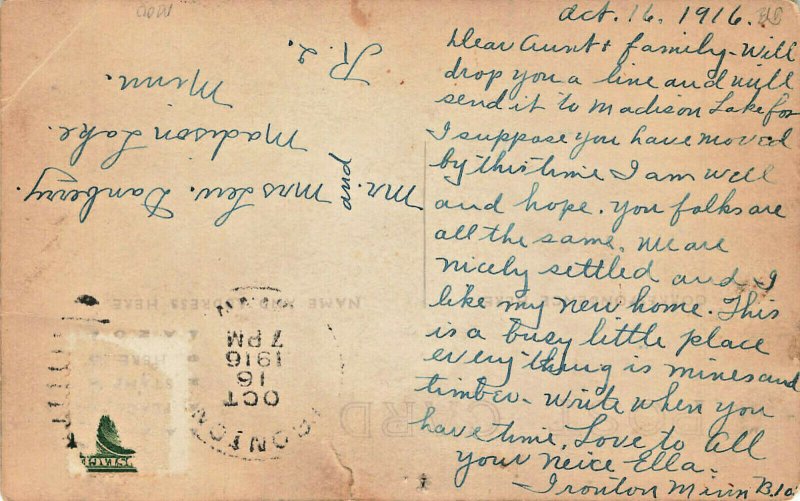 Oct. 16. 1916.
Dear Aunt & family - Will
drop you a line and will
send it to Madison Lake for
I suppose you have moved
by this time I am well
and hope. you folks are
all the same. We are
nicely settled and I
like my new home. This
is a busy little place
everything is mines and
timber - Write when you
have time. Love to all
your neice Ella.
Ironton Minn
Mr.
and
Mrs Lew. Danberry.
Madison Lake.
Minn.
R 2.
IRONTON
MINN.
OCT
16
1916
7 PM
NAME AND ADDRESS HERE
POST CARD